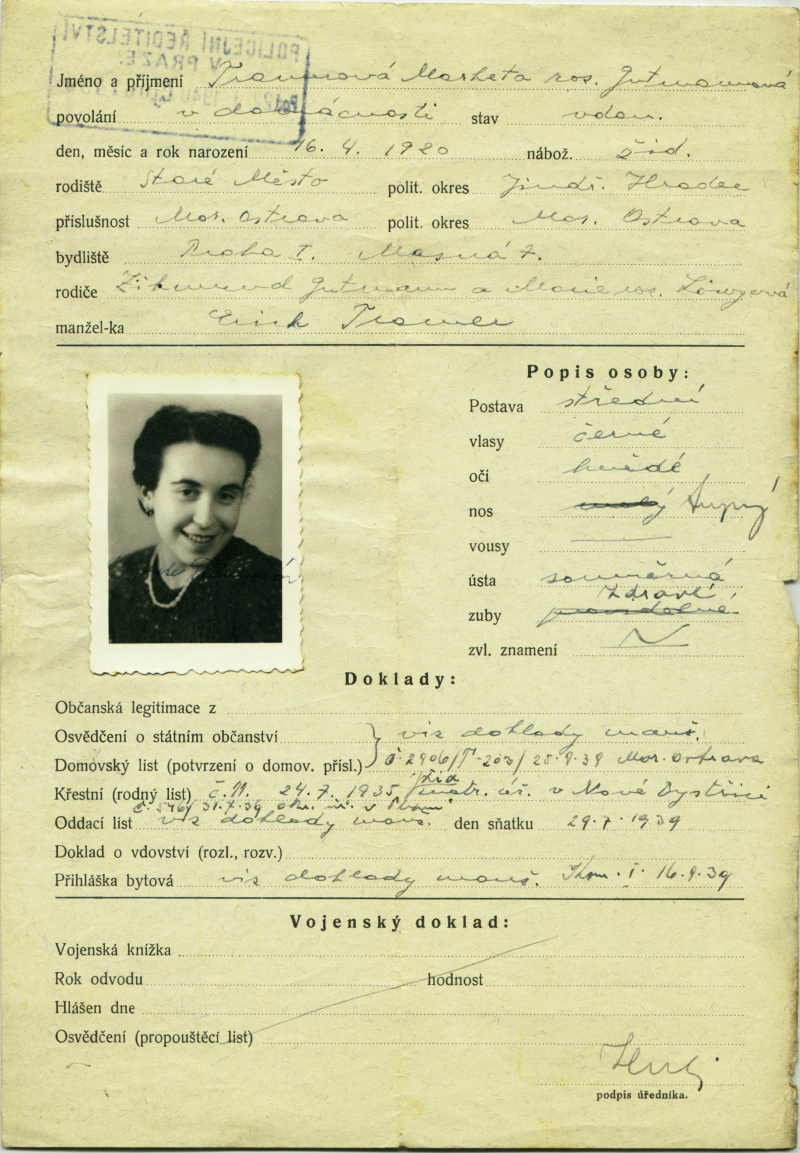 POLICEJNÍ ŘEDITELSTVÍ
V PRAZE
Jméno a příjmení Tramerová Marketa roz. Gutmannová
povolání v domácnosti stav vdan.
den, měsíc a rok narození 16. 4. 1920 nábož. žid.
rodiště Staré Město polit. okres Jindř. Hradec
příslušnost Mor. Ostrava polit. okres Mor. Ostrava
bydliště Praha I. Masná 7.
rodiče Zikmund Gutmann a Marie roz. Löwyová
manžel-ka Erich Tramer
Popis osoby:
Postava střední
vlasy černé
oči hnědé
nos malý tupý
vousy
ústa souměrná
zdravé
zuby pravidelné
zvl. znamení
Doklady:
Občanská legitimace z
Osvědčení o státním občanství viz doklady manž.
Domovský list (potvrzení o domov. přísl.) 25.9.39 Mor. Ostrava
žid.
Křestní (rodný list) č. 11. 24.7.1935 matr. úř. v Nové Bystřici
Oddací list viz doklady manž. den sňatku 29.7.1939
Doklad o vdovství (rozl., rozv.)
Přihláška bytová viz doklady manž. Kom. I. 16.9.39
Vojenský doklad:
Vojenská knížka
Rok odvodu hodnost
Hlášen dne
Osvědčení (propouštěcí list)
podpis úředníka.